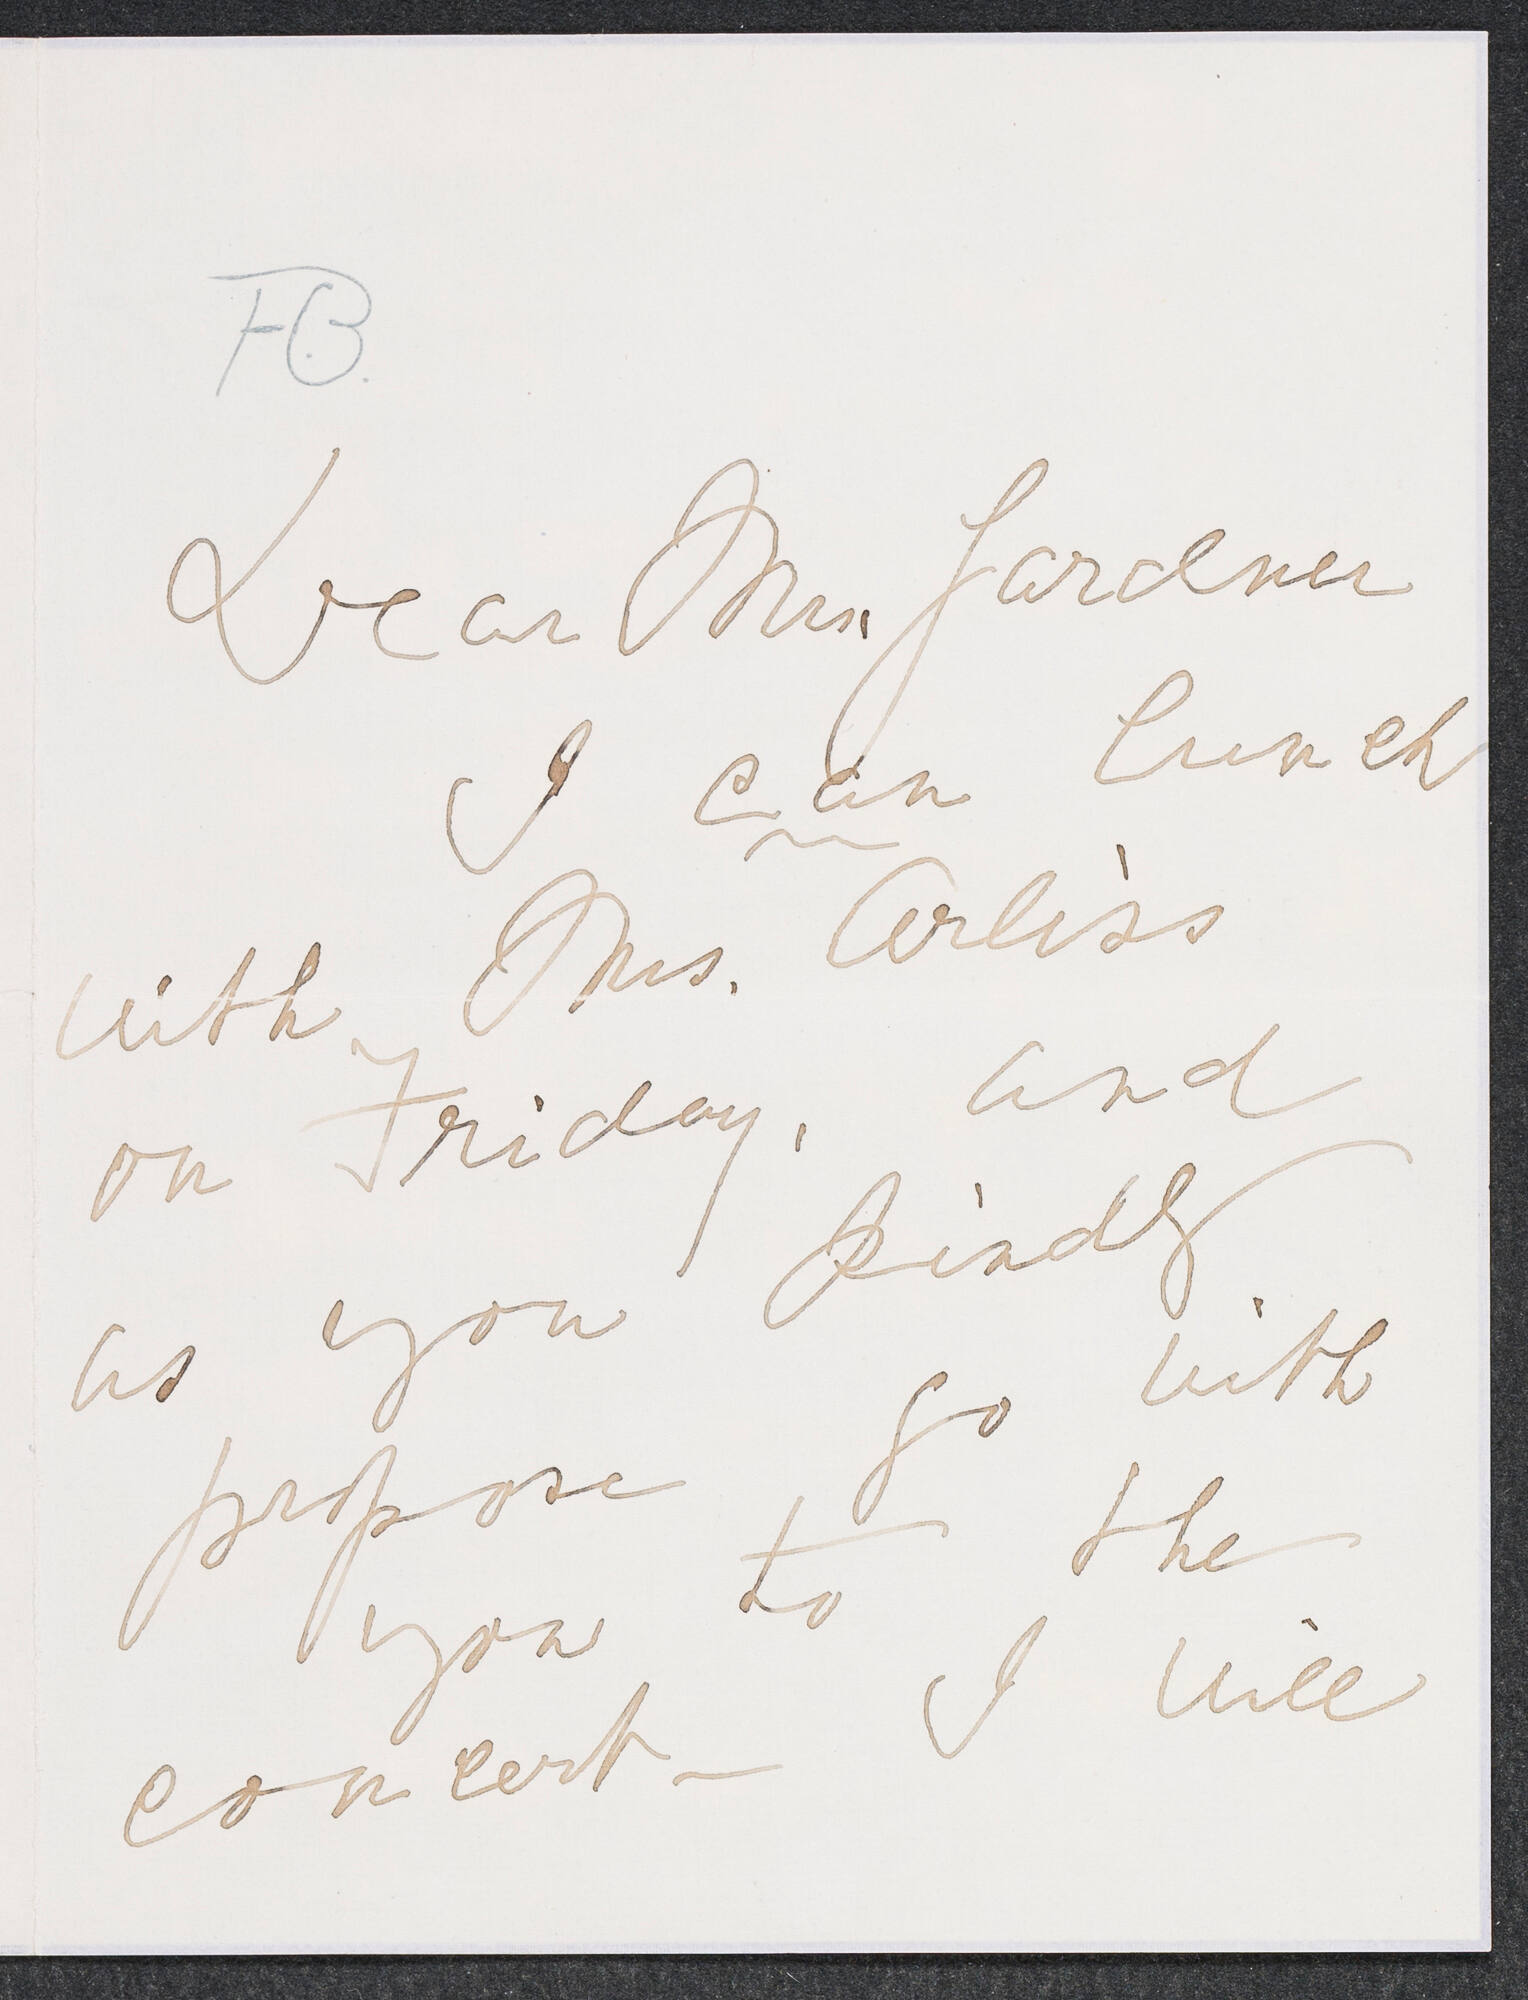 FB.
Dear Mrs. Gardner
I can lunch
with Mrs. Arliss
on Friday, and
as you kindly
propose go with
you to the
concert — I will